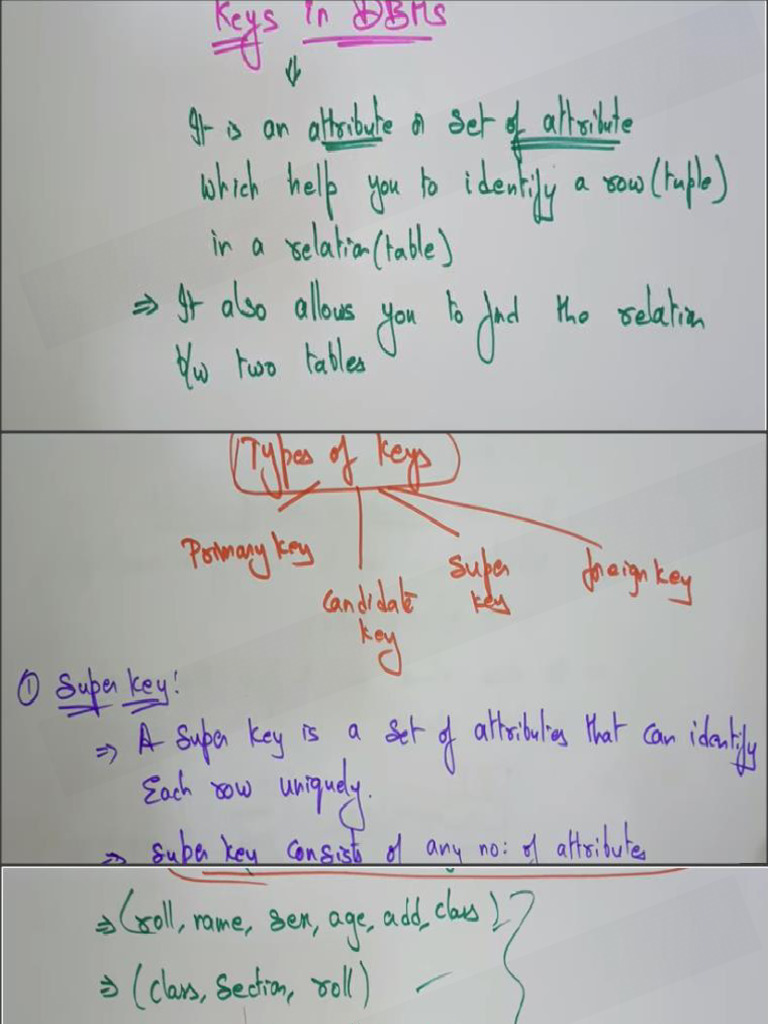 Keys in DBMS
It is an attribute or set of attribute
which help you to identify a row (tuple)
in a relation (table)
⇒ It also allows you to find the relation
b/w two tables
Types of Keys
Primary key
Candidate key
Super key
foreign key
① Super key:
⇒ A Super key is a set of attributies that can identify
Each row uniquely.
⇒ Super key consists of any no: of attributes
⇒ (roll, name, sex, age, add, class)
⇒ (class, section, roll)